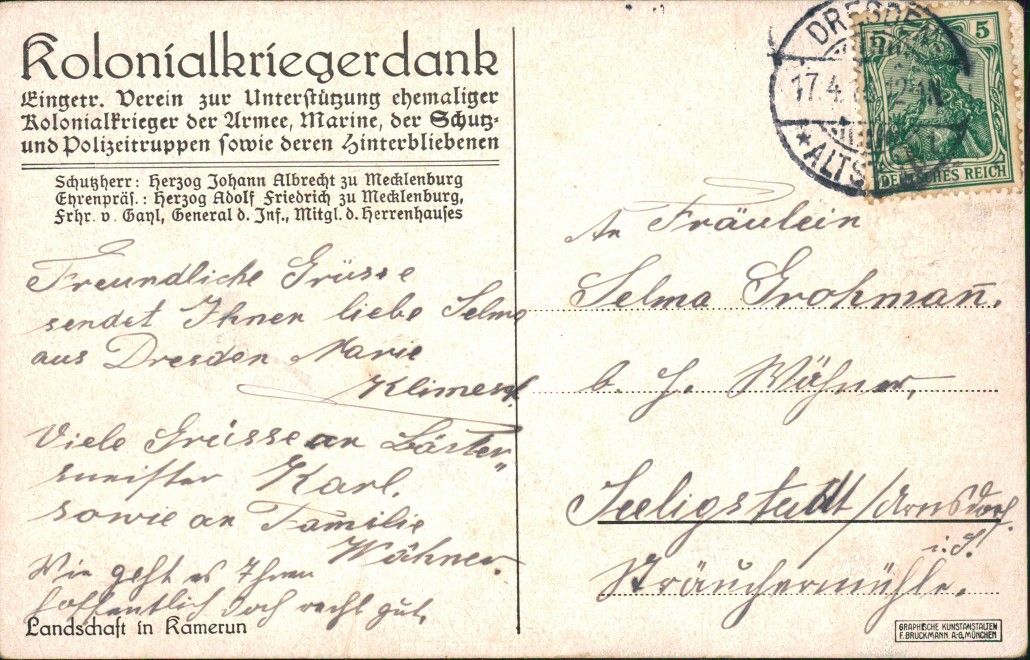 Kolonialkriegerdank
Eingetr. Verein zur Unterstützung ehemaliger
Kolonialkrieger der Armee, Marine, der Schutz-
und Polizeitruppen sowie deren Hinterbliebenen
Schutzherr: Herzog Johann Albrecht zu Mecklenburg
Ehrenpräs.: Herzog Adolf Friedrich zu Mecklenburg,
Frhr. v. Gayl, General d. Inf., Mitgl. d. Herrenhauses
Freundliche Grüsse
sendet Ihnen liebe Selma
aus Dresden Marie
Klimesch.
Viele Grüsse an Bäcker„
meister Karl.
sowie an Familie
Wähner.
Wie geht es Ihnen
hoffentlich doch recht gut.
Landschaft in Kamerun
DRESDEN
17.4.
*ALTST.
5 5
DEUTSCHES REICH
An Fräulein
Selma Grohmañ.
b. H. Wähner,
Seeligstadt/Arnsdorf
i. S.
Sträuchermühle.
GRAPHISCHE KUNSTANSTALTEN
F. BRUCKMANN A-G, MÜNCHEN